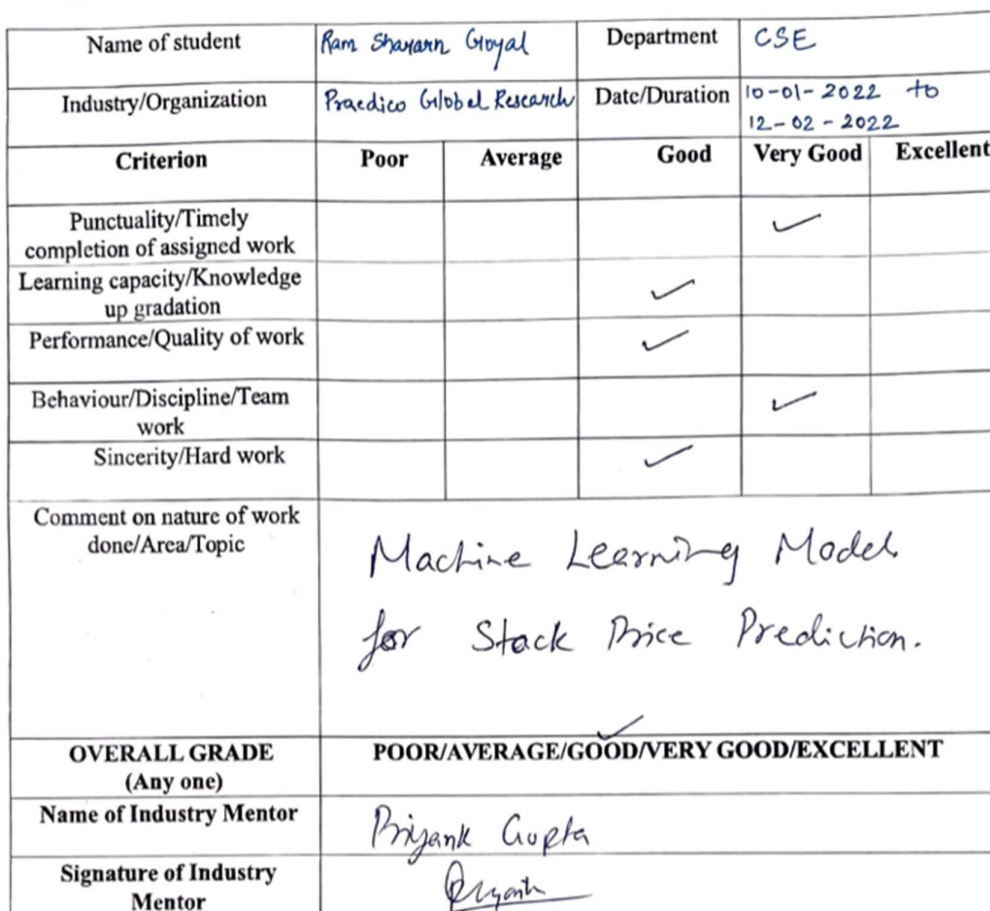 Name of student Ram Shararn Goyal Department CSE
Industry/Organization Praedico Global Research Date/Duration 10-01-2022 to
12-02-2022
Criterion Poor Average Good Very Good Excellent
Punctuality/Timely ✓
completion of assigned work
Learning capacity/Knowledge ✓
up gradation
Performance/Quality of work ✓
Behaviour/Discipline/Team ✓
work
Sincerity/Hard work ✓
Comment on nature of work
done/Area/Topic
Machine Learning Model
for Stock Price Prediction.
✓
OVERALL GRADE POOR/AVERAGE/GOOD/VERY GOOD/EXCELLENT
(Any one)
Name of Industry Mentor Priyank Gupta
Signature of Industry Priyank
Mentor